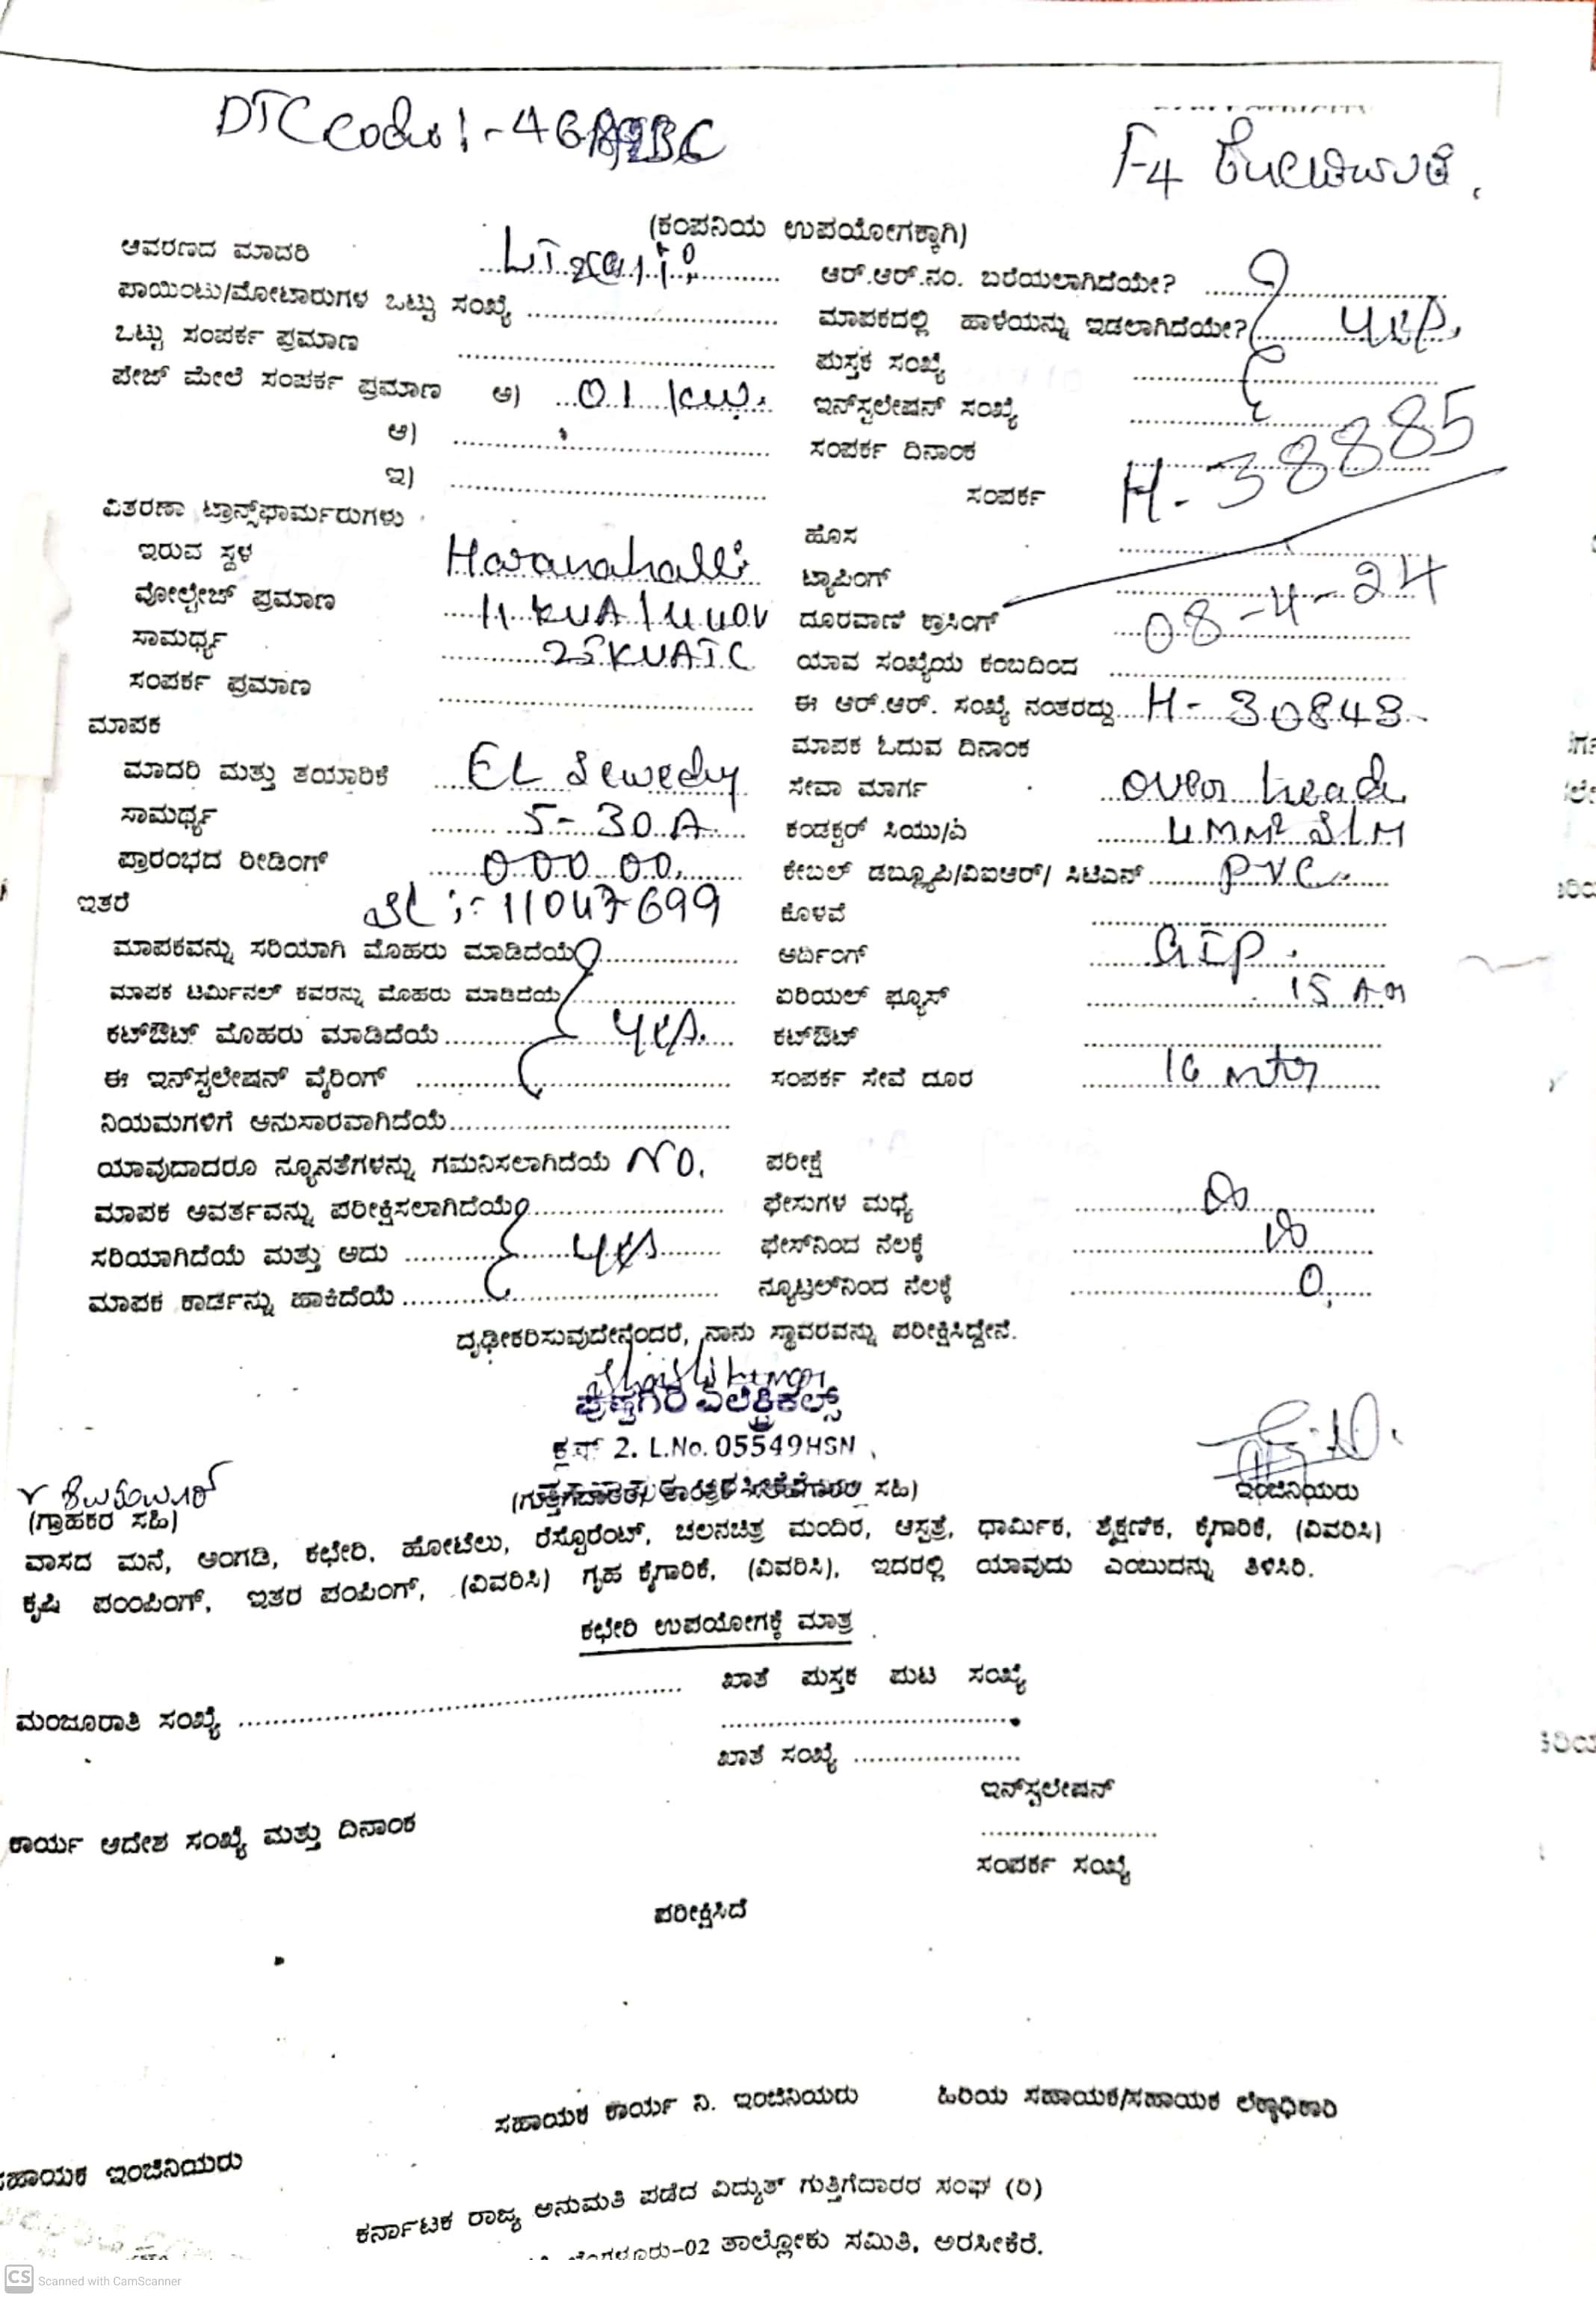 DTC code :- 46
F4
(ಕಂಪನಿಯ ಉಪಯೋಗಕ್ಕಾಗಿ)
ಆವರಣದ ಮಾದರಿ
ಆರ್.ಆರ್.ನಂ. ಬರೆಯಲಾಗಿದೆಯೇ?
ಪಾಯಿಂಟು/ಮೋಟಾರುಗಳ ಒಟ್ಟು ಸಂಖ್ಯೆ
ಮಾಪಕದಲ್ಲಿ ಹಾಳೆಯನ್ನು ಇಡಲಾಗಿದೆಯೇ? yes
ಒಟ್ಟು ಸಂಪರ್ಕ ಪ್ರಮಾಣ
ಪುಸ್ತಕ ಸಂಖ್ಯೆ
ಪೇಜ್ ಮೇಲೆ ಸಂಪರ್ಕ ಪ್ರಮಾಣ ಅ) 01 kw.
ಇನ್‌ಸ್ಟಲೇಷನ್ ಸಂಖ್ಯೆ
ಆ)
ಸಂಪರ್ಕ ದಿನಾಂಕ
ಇ)
ಸಂಪರ್ಕ H-38885
ವಿತರಣಾ ಟ್ರಾನ್ಸ್‌ಫಾರ್ಮರುಗಳು
ಹೊಸ
ಇರುವ ಸ್ಥಳ Haranahalli
ಟ್ಯಾಪಿಂಗ್
ವೋಲ್ಟೇಜ್ ಪ್ರಮಾಣ 11 KVA/440V
ದೂರವಾಣಿ ಕ್ರಾಸಿಂಗ್ 08-4-24
ಸಾಮರ್ಥ್ಯ 25 KVA TC
ಯಾವ ಸಂಖ್ಯೆಯ ಕಂಬದಿಂದ
ಸಂಪರ್ಕ ಪ್ರಮಾಣ
ಈ ಆರ್.ಆರ್. ಸಂಖ್ಯೆ ನಂತರದ್ದು H-30843
ಮಾಪಕ
ಮಾಪಕ ಓದುವ ದಿನಾಂಕ
ಮಾದರಿ ಮತ್ತು ತಯಾರಿಕೆ EL Sewedy
ಸೇವಾ ಮಾರ್ಗ over head
ಸಾಮರ್ಥ್ಯ 5-30 A
ಕಂಡಕ್ಟರ್ ಸಿಯು/ಎ 4MM²
ಪ್ರಾರಂಭದ ರೀಡಿಂಗ್ 000 00
ಕೇಬಲ್ ಡಬ್ಲ್ಯೂಪಿ/ವಿಐಆರ್/ ಸಿಟಿಎಸ್ PVC
ಇತರೆ SL :- 11047699
ಕೊಳವೆ
ಮಾಪಕವನ್ನು ಸರಿಯಾಗಿ ಮೊಹರು ಮಾಡಿದೆಯೆ
ಅರ್ದಿಂಗ್ GIP
ಮಾಪಕ ಟರ್ಮಿನಲ್ ಕವರನ್ನು ಮೊಹರು ಮಾಡಿದೆಯೆ
ಏರಿಯಲ್ ಫ್ಯೂಸ್ 15 Am
ಕಟ್‌ಔಟ್ ಮೊಹರು ಮಾಡಿದೆಯೆ yes.
ಕಟ್‌ಔಟ್
ಈ ಇನ್‌ಸ್ಟಲೇಷನ್ ವೈರಿಂಗ್
ಸಂಪರ್ಕ ಸೇವೆ ದೂರ
ನಿಯಮಗಳಿಗೆ ಅನುಸಾರವಾಗಿದೆಯೆ
ಯಾವುದಾದರೂ ನ್ಯೂನತೆಗಳನ್ನು ಗಮನಿಸಲಾಗಿದೆಯೆ NO.
ಪರೀಕ್ಷೆ
ಮಾಪಕ ಆವರ್ತವನ್ನು ಪರೀಕ್ಷಿಸಲಾಗಿದೆಯೆ
ಫೇಸುಗಳ ಮಧ್ಯೆ
ಸರಿಯಾಗಿದೆಯೆ ಮತ್ತು ಅದು yes
ಫೇಸ್‌ನಿಂದ ನೆಲಕ್ಕೆ
ಮಾಪಕ ಕಾರ್ಡನ್ನು ಹಾಕಿದೆಯೆ
ನ್ಯೂಟ್ರಲ್‌ನಿಂದ ನೆಲಕ್ಕೆ 0
ದೃಢೀಕರಿಸುವುದೇನೆಂದರೆ, ನಾನು ಸ್ಥಾವರವನ್ನು ಪರೀಕ್ಷಿಸಿದ್ದೇನೆ.
ಪುಣ್ಯಗಿರಿ ಎಲೆಕ್ಟ್ರಿಕಲ್ಸ್
2. L.No. 05549HSN
ಶಿವಕುಮಾರ್
(ಗ್ರಾಹಕರ ಸಹಿ)
ಸಹಿ)
ಇಂಜಿನಿಯರು
ವಾಸದ ಮನೆ, ಅಂಗಡಿ, ಕಛೇರಿ, ಹೋಟೆಲು, ರೆಸ್ಟೊರೆಂಟ್, ಚಲನಚಿತ್ರ ಮಂದಿರ, ಆಸ್ಪತ್ರೆ, ಧಾರ್ಮಿಕ, ಶೈಕ್ಷಣಿಕ, ಕೈಗಾರಿಕೆ, (ವಿವರಿಸಿ)
ಕೃಷಿ ಪಂಪಿಂಗ್, ಇತರ ಪಂಪಿಂಗ್, (ವಿವರಿಸಿ) ಗೃಹ ಕೈಗಾರಿಕೆ, (ವಿವರಿಸಿ), ಇದರಲ್ಲಿ ಯಾವುದು ಎಂಬುದನ್ನು ತಿಳಿಸಿರಿ.
ಕಛೇರಿ ಉಪಯೋಗಕ್ಕೆ ಮಾತ್ರ
ಖಾತೆ ಪುಸ್ತಕ ಪುಟ ಸಂಖ್ಯೆ
ಮಂಜೂರಾತಿ ಸಂಖ್ಯೆ
ಖಾತೆ ಸಂಖ್ಯೆ
ಇನ್‌ಸ್ಟಲೇಷನ್
ಕಾರ್ಯ ಆದೇಶ ಸಂಖ್ಯೆ ಮತ್ತು ದಿನಾಂಕ
ಸಂಪರ್ಕ ಸಂಖ್ಯೆ
ಪರೀಕ್ಷಿಸಿದೆ
ಸಹಾಯಕ ಕಾರ್ಯ ನಿ. ಇಂಜಿನಿಯರು
ಹಿರಿಯ ಸಹಾಯಕ/ಸಹಾಯಕ ಲೆಕ್ಕಾಧಿಕಾರಿ
ಸಹಾಯಕ ಇಂಜಿನಿಯರು
ಕರ್ನಾಟಕ ರಾಜ್ಯ ಅನುಮತಿ ಪಡೆದ ವಿದ್ಯುತ್ ಗುತ್ತಿಗೆದಾರರ ಸಂಘ (ರಿ)
ಬೆಂಗಳೂರು-02 ತಾಲ್ಲೋಕು ಸಮಿತಿ, ಅರಸೀಕೆರೆ.
CS Scanned with CamScanner